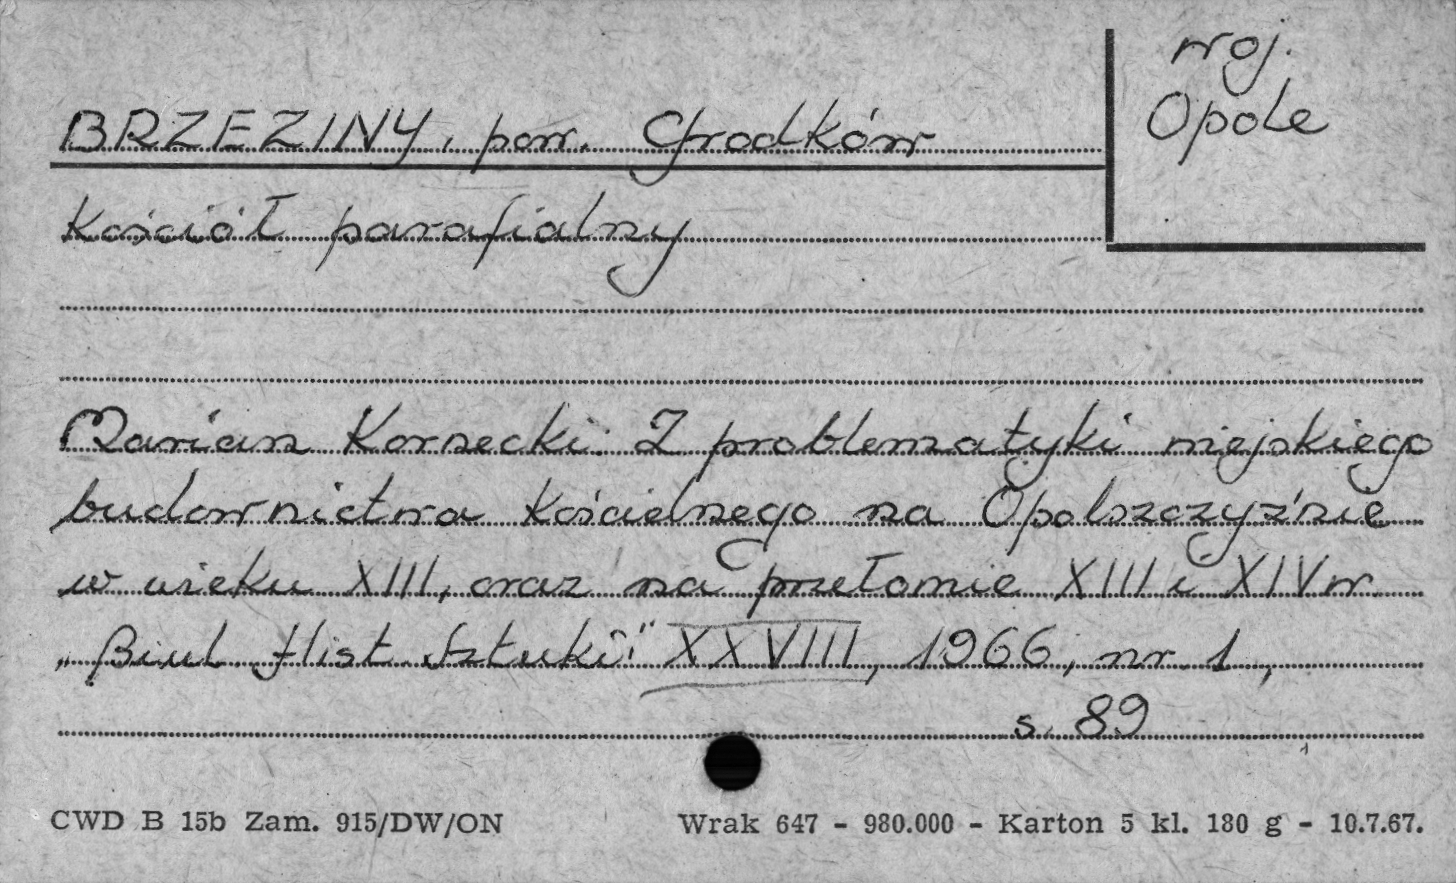 woj.
Opole
BRZEZINY, pow. Grodków
Kościół parafialny
Marian Kornecki: Z problematyki miejskiego
budownictwa kościelnego na Opolszczyźnie
w wieku XIII, oraz na przełomie XIII i XIV w.
„Biul. Hist. Sztuki" XXVIII, 1966, nr 1,
s. 89
CWD B 15b Zam. 915/DW/ON Wrak 647 - 980.000 - Karton 5 kl. 180 g - 10.7.67.